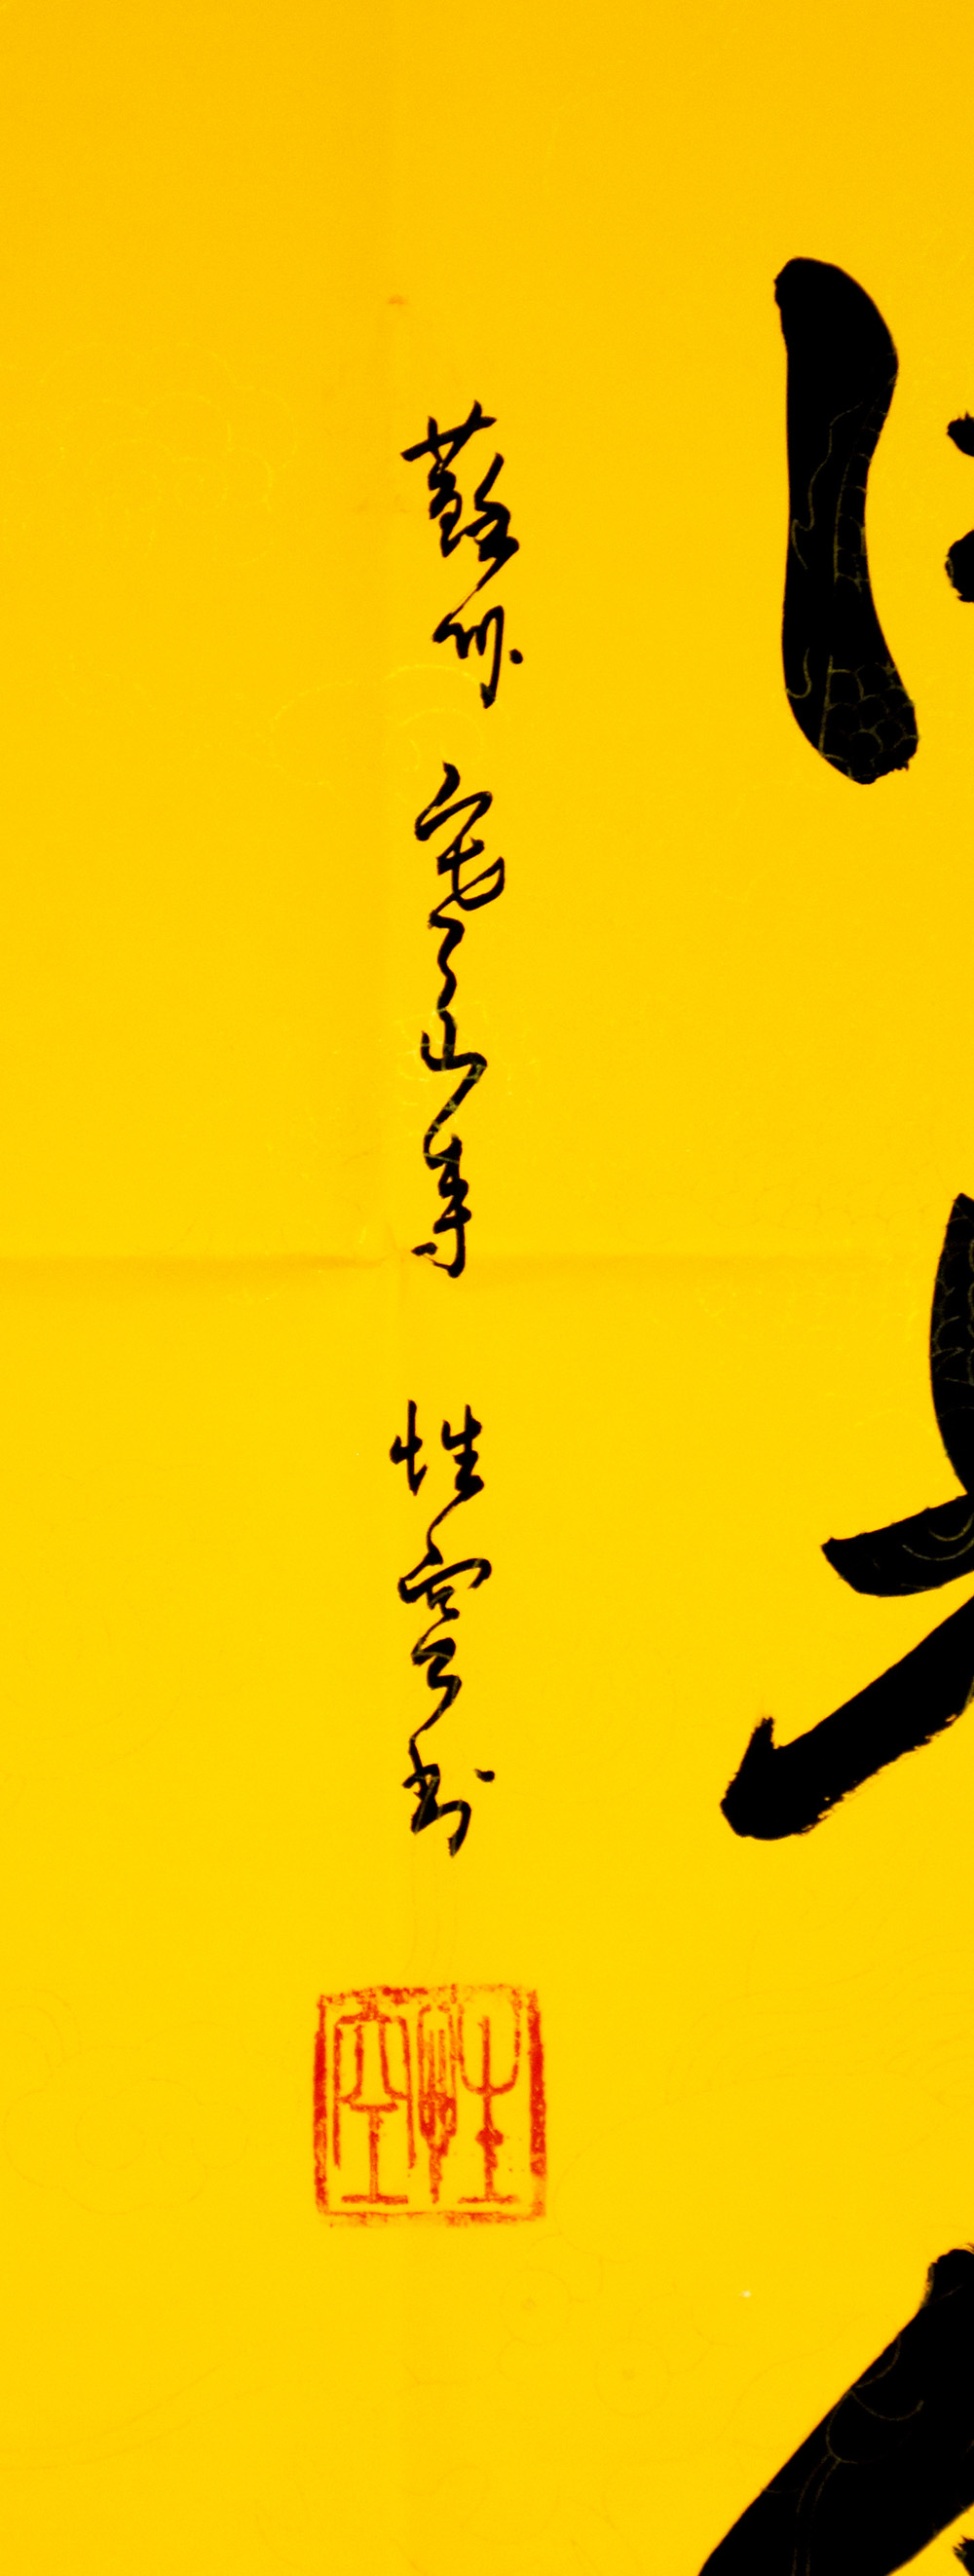 蘇州寒山寺性空書
性空